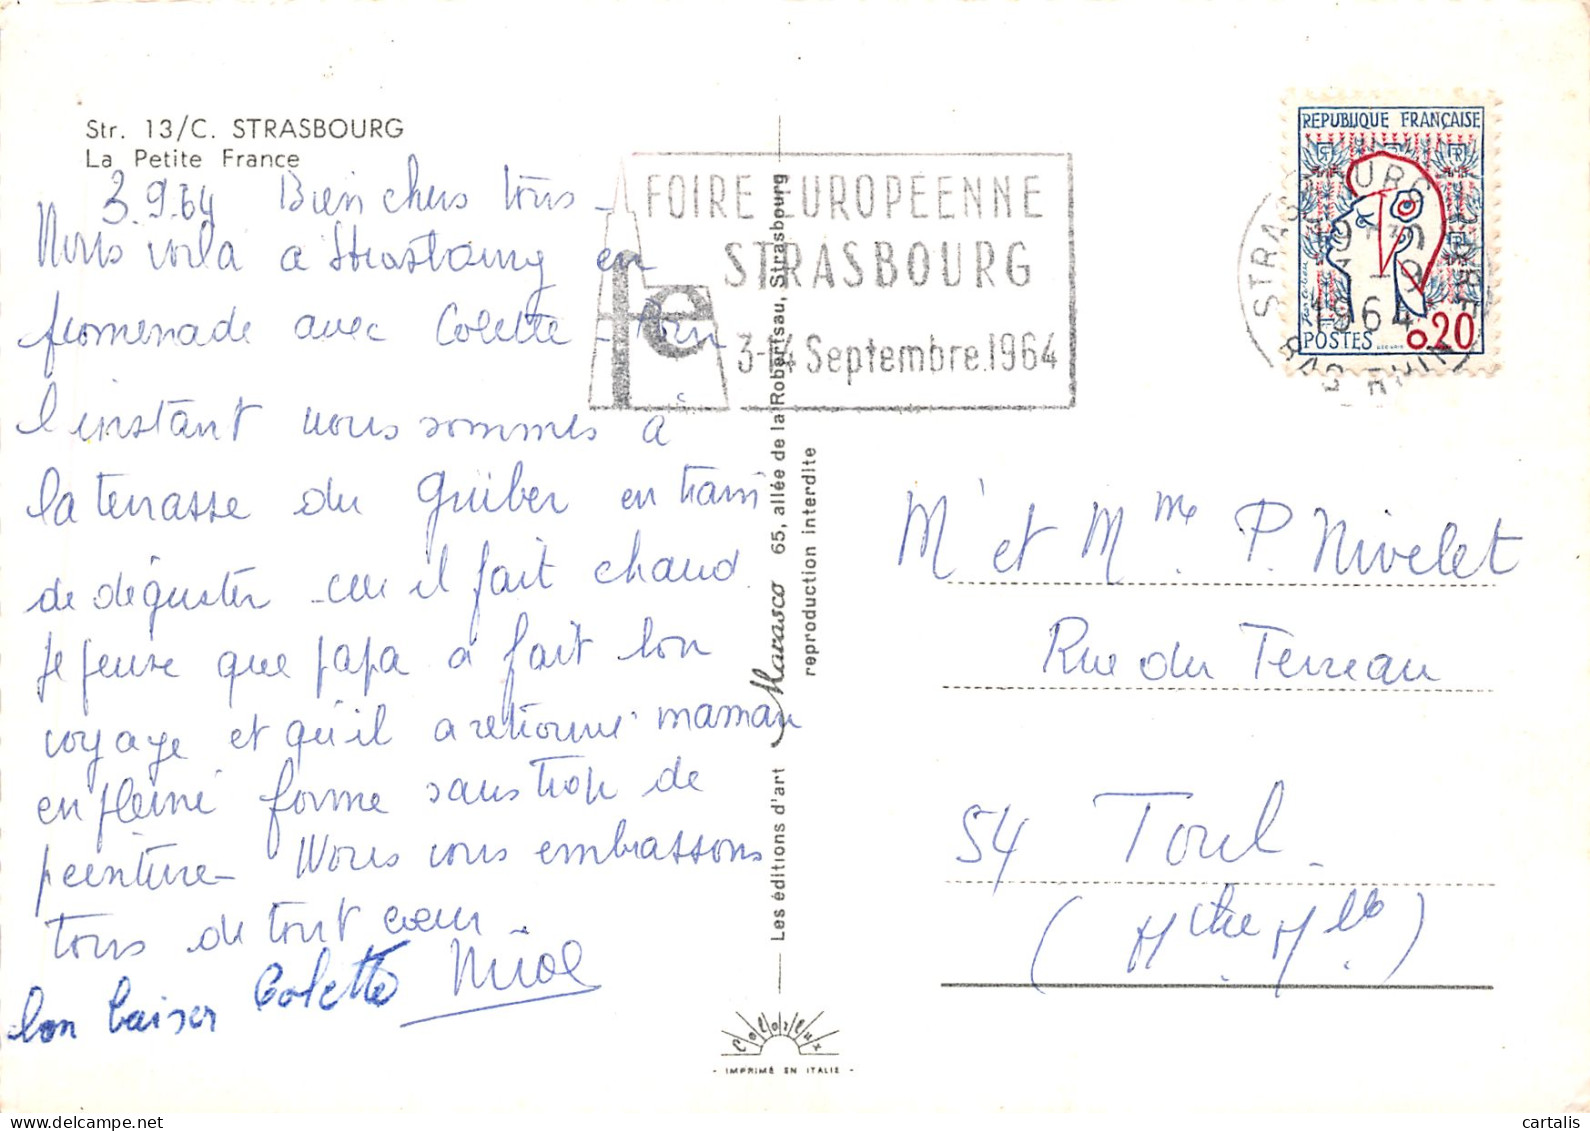 Str. 13/C. STRASBOURG
La Petite France
3.9.64 Bien chers tous -
Nous voilà à Strasbourg en
promenade avec Colette - Pour
l'instant nous sommes à
la terrasse du Gruber en train
de déguster car il fait chaud.
Je pense que papa a fait bon
voyage et qu'il a retrouvé maman
en pleine forme sans trop de
peinture - Nous vous embrassons
tous de tout cœur
bon baiser Colette
FOIRE EUROPEENNE
STRASBOURG
fe
3-14 Septembre.1964
REPUBLIQUE FRANÇAISE
RF
POSTES 0,20
STRASBOURG
3-9
1964
BAS RHIN
Les éditions d'art Marasco 65, allée de la Robertsau, Strasbourg
reproduction interdite
M' et Mme. P. Nivelet
Rue du Terreau
54 Toul.
(Mthe Mlle)
Colorlux
- IMPRIMÉ EN ITALIE -
cartalis